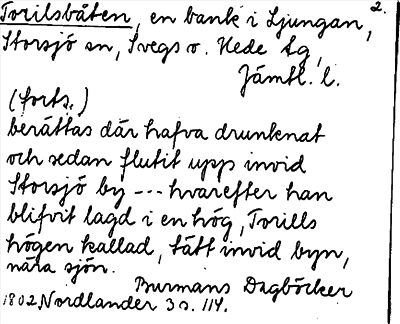 2.
Torilsbåten, en bank i Ljungan,
Storsjö sn, Svegs o. Hede tg,
Jämtl. l.
(forts.)
berättas där hafva drunknat
och sedan flutit upp invid
Storsjö by --- hvarefter han
blifvit lagd i en hög, Torills
högen kallad, tätt invid byn,
nära sjön.
Burmans Dagböcker
1802, Nordlander 3 s. 114.